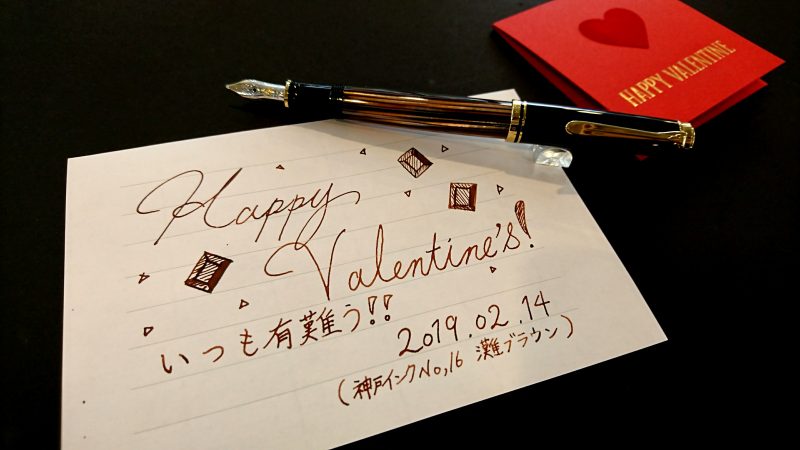 HAPPY VALENTINE
Happy
Valentine's!
いつも有難う!!
2019.02.14
(神戸インクNo,16 灘ブラウン)